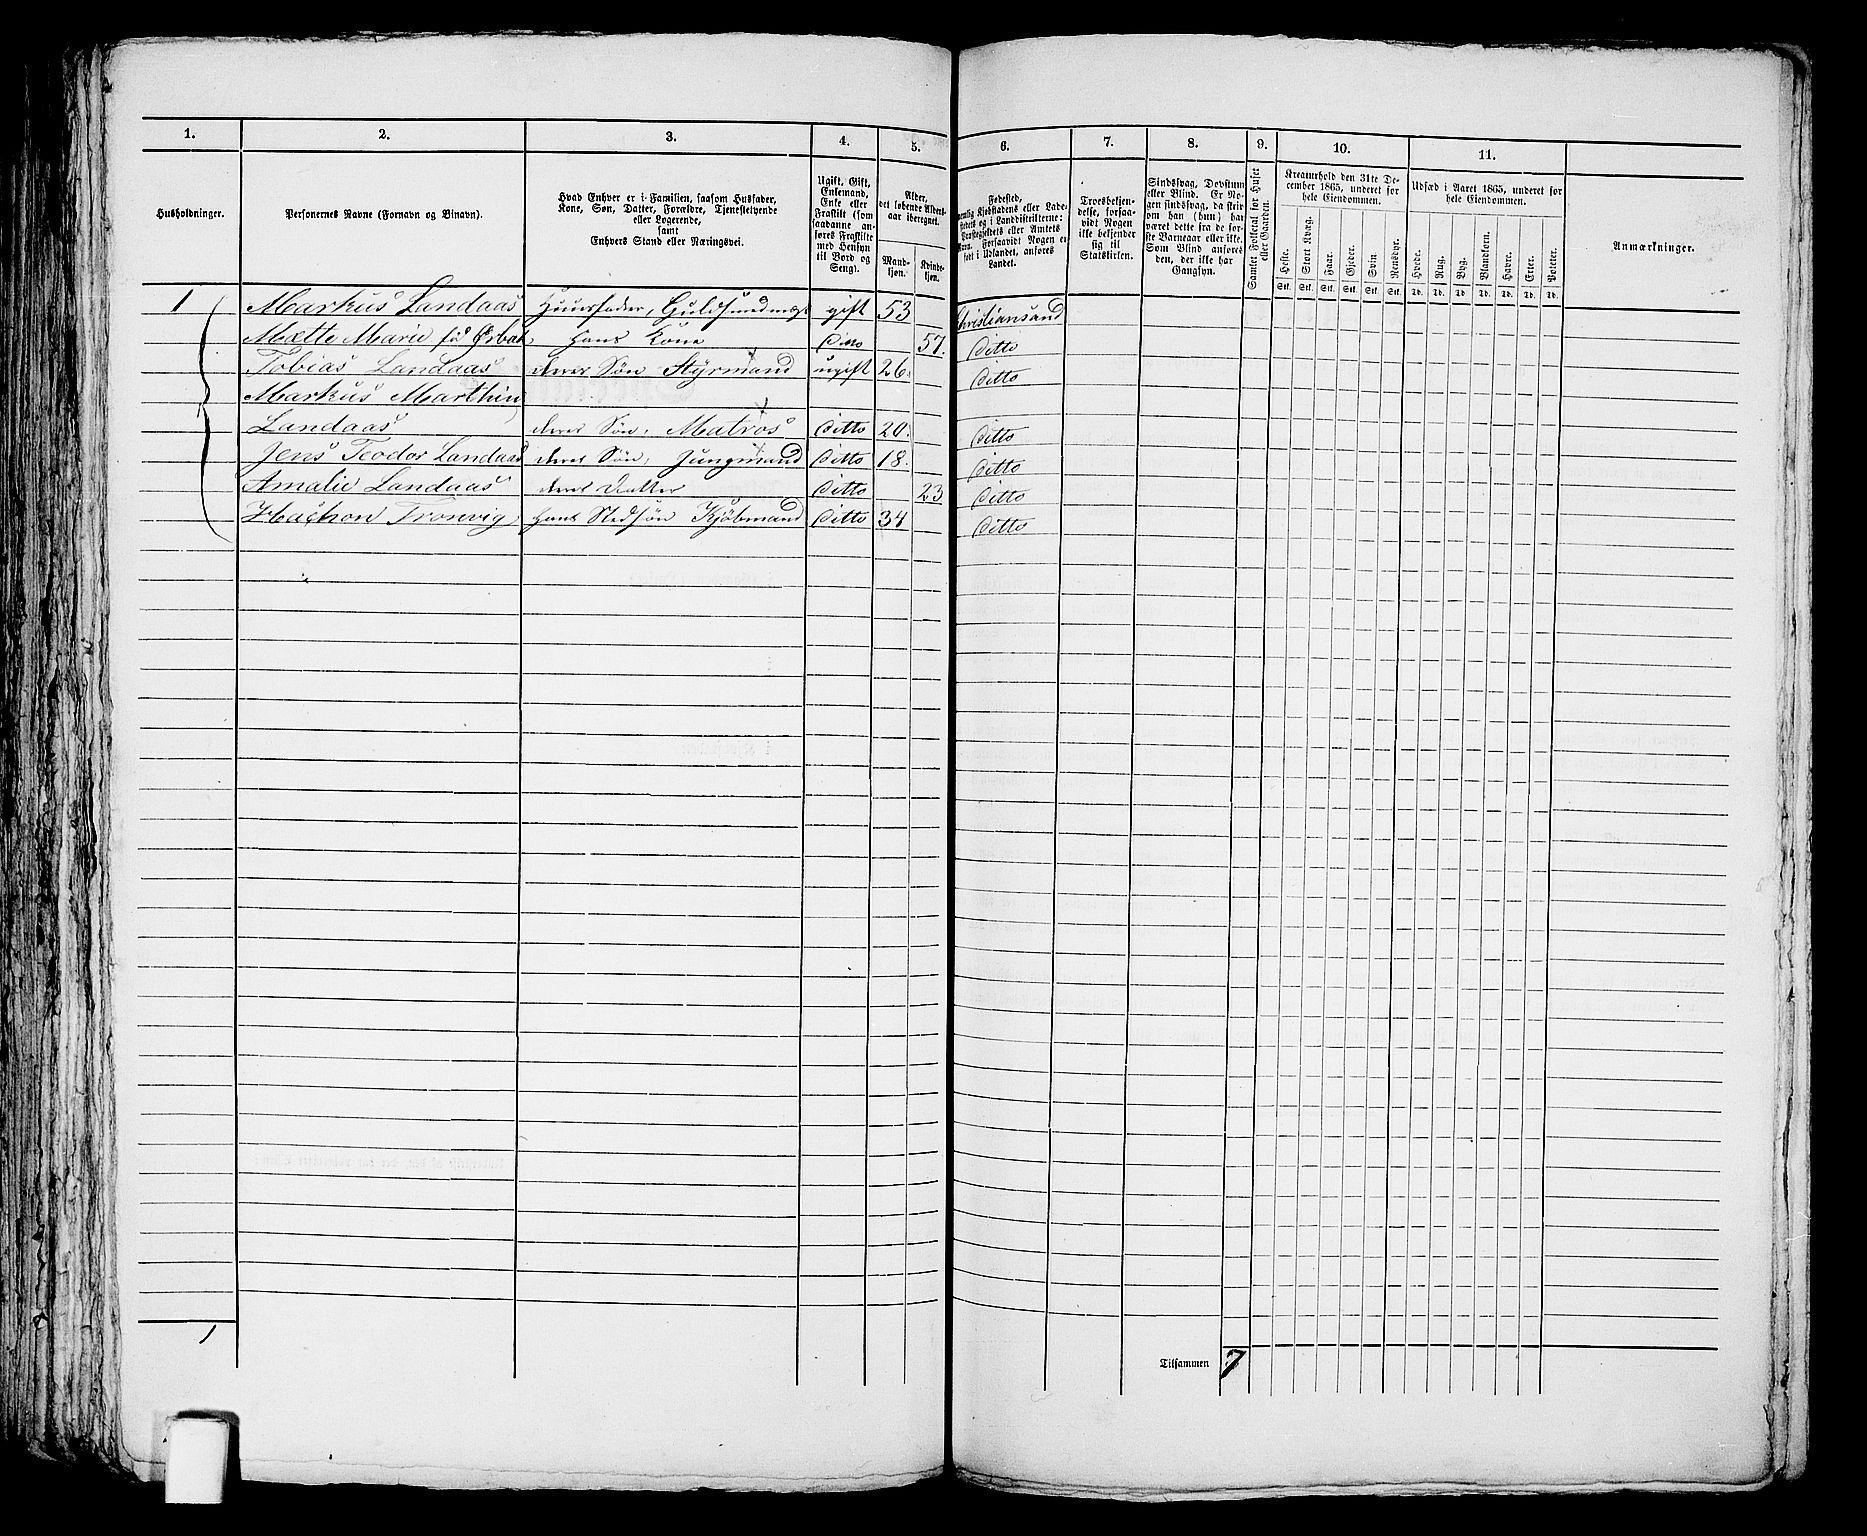 1. 2. 3. 4. 5. 6. 7. 8. 9. 10. 11.
Husholdninger.
Personernes Navne (Fornavn og Binavn).
Hvad Enhver er i Familien, saasom Husfader,
Kone, Søn, Datter, Forældre, Tjenestetyende
eller Logerende,
samt
Enhvers Stand eller Næringsvei.
Ugift, Gift,
Enkemand,
Enke eller
Fraskilt (som
saadanne an-
føres Fraskilte
med Hensyn
til Bord og
Seng).
Alder,
det løbende Alders-
aar iberegnet.
Mand-
kjøn.
Kvinde-
kjøn.
Fødested,
nemlig Kjøbstadens eller Lade-
stedets og i Landdistrikterne:
Præstegjeldets eller Amtets
Navn. Forsaavidt Nogen er
født i Udlandet, anføres
Landet.
Troesbekjen-
delse, forsaa-
vidt Nogen
ikke bekjender
sig til
Statskirken.
Sindssvag, Døvstum
eller Blind. Er No-
gen sindssvag, da skriv
om han (hun) har
været dette fra de før-
ste Barneaar eller ikke.
Som Blind anføres
den, der ikke har
Gangsyn.
Samlet Folketal for Huset
eller Gaarden.
Kreaturhold den 31te De-
cember 1865, underet for
hele Eiendommen.
Heste. Stort Kvæg. Faar. Gjeder. Svin. Rensdyr.
Stk. Stk. Stk. Stk. Stk. Stk.
Udsæd i Aaret 1865, underet for
hele Eiendommen.
Hvede. Rug. Byg. Blandkorn. Havre. Erter. Poteter.
Td. Td. Td. Td. Td. Td. Td.
Anmærkninger.
1 Markus Landaas Huusfader, Guldsmedmest gift 53 Christiansand
Mætte Marie hans Kone Ditto 57. Ditto
Tobias Landaas deres Søn Styrmand ugift 26. Ditto
Markus Marthin
Landaas deres Søn, Matros Ditto 20. Ditto
Jens Teodor Landaas deres Søn, Jungmand Ditto 18. Ditto
Amalie Landaas deres Datter Ditto 23 Ditto
Tronvig hans Stedsøn Kjøbmand Ditto 34 Ditto
1
Tilsammen 7